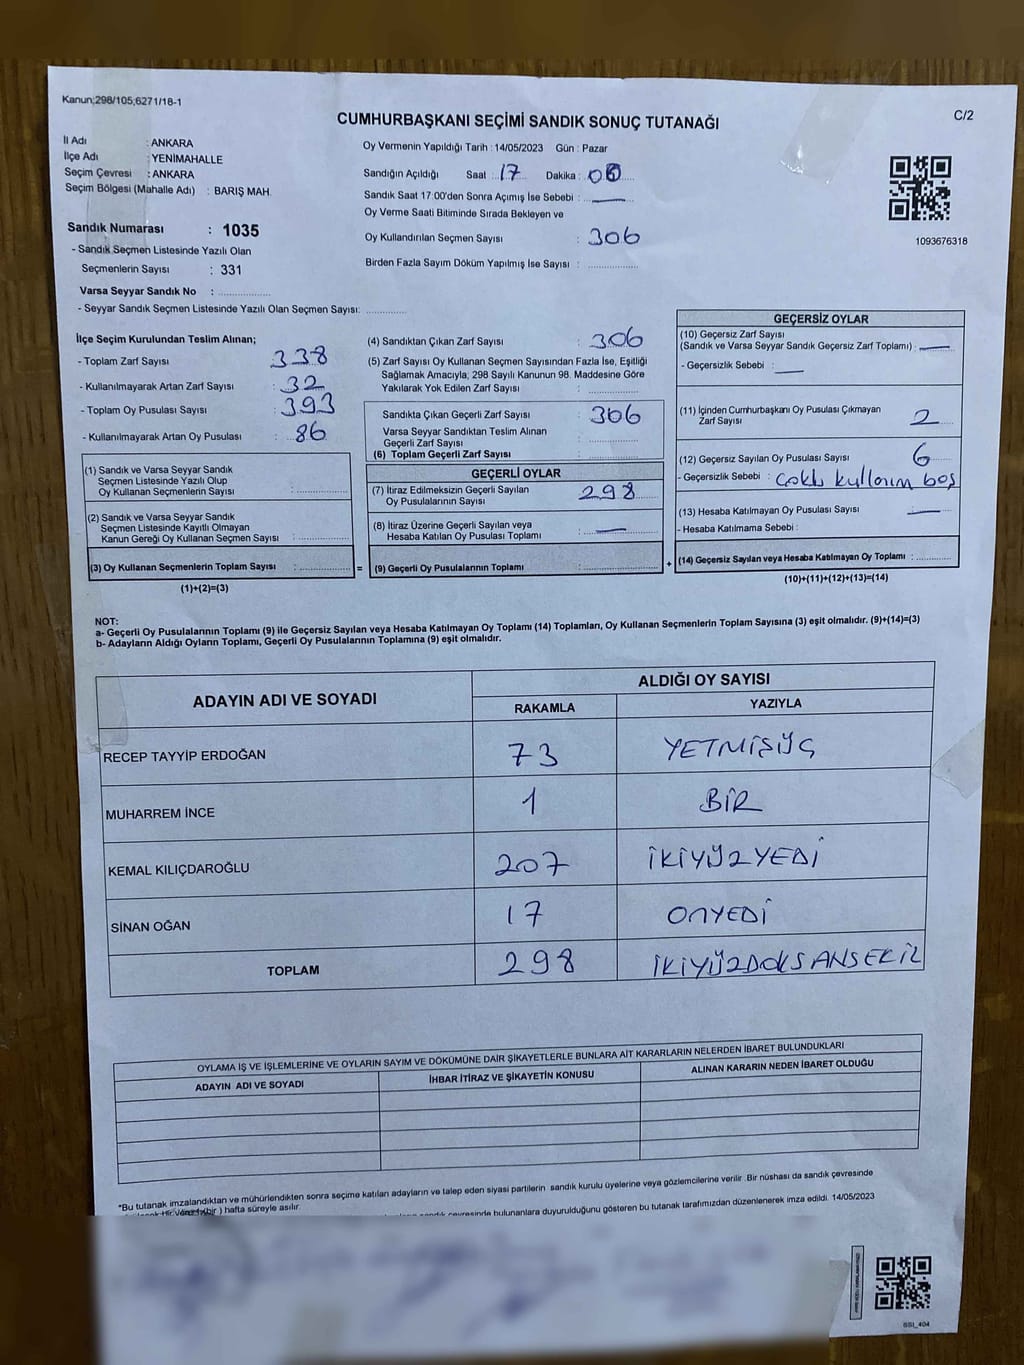 Kanun;298/105,6271/18-1
C/2
CUMHURBAŞKANI SEÇİMİ SANDIK SONUÇ TUTANAĞI
İl Adı : ANKARA
İlçe Adı : YENİMAHALLE
Seçim Çevresi : ANKARA
Seçim Bölgesi (Mahalle Adı) : BARIŞ MAH.
Oy Vermenin Yapıldığı Tarih : 14/05/2023 Gün : Pazar
Sandığın Açıldığı Saat : 17 Dakika : 00
Sandık Saat 17:00'den Sonra Açımış İse Sebebi : —
Oy Verme Saati Bitiminde Sırada Bekleyen ve
Oy Kullandırılan Seçmen Sayısı : 306
Birden Fazla Sayım Döküm Yapılmış İse Sayısı :
1093676318
Sandık Numarası : 1035
- Sandık Seçmen Listesinde Yazılı Olan
Seçmenlerin Sayısı : 331
Varsa Seyyar Sandık No :
- Seyyar Sandık Seçmen Listesinde Yazılı Olan Seçmen Sayısı:
İlçe Seçim Kurulundan Teslim Alınan;
- Toplam Zarf Sayısı : 338
- Kullanılmayarak Artan Zarf Sayısı : 32
- Toplam Oy Pusulası Sayısı : 393
- Kullanılmayarak Artan Oy Pusulası : 86
(1) Sandık ve Varsa Seyyar Sandık
Seçmen Listesinde Yazılı Olup
Oy Kullanan Seçmenlerin Sayısı :
(2) Sandık ve Varsa Seyyar Sandık
Seçmen Listesinde Kayıtlı Olmayan
Kanun Gereği Oy Kullanan Seçmen Sayısı :
(3) Oy Kullanan Seçmenlerin Toplam Sayısı :
(1)+(2)=(3)
(4) Sandıktan Çıkan Zarf Sayısı : 306
(5) Zarf Sayısı Oy Kullanan Seçmen Sayısından Fazla İse, Eşitliği
Sağlamak Amacıyla, 298 Sayılı Kanunun 98. Maddesine Göre
Yakılarak Yok Edilen Zarf Sayısı :
Sandıkta Çıkan Geçerli Zarf Sayısı : 306
Varsa Seyyar Sandıktan Teslim Alınan
Geçerli Zarf Sayısı :
(6) Toplam Geçerli Zarf Sayısı :
GEÇERLİ OYLAR
(7) İtiraz Edilmeksizin Geçerli Sayılan
Oy Pusulalarının Sayısı : 298
(8) İtiraz Üzerine Geçerli Sayılan veya
Hesaba Katılan Oy Pusulası Toplamı : —
= (9) Geçerli Oy Pusulalarının Toplamı :
GEÇERSİZ OYLAR
(10) Geçersiz Zarf Sayısı
(Sandık ve Varsa Seyyar Sandık Geçersiz Zarf Toplamı) : —
- Geçersizlik Sebebi : —
(11) İçinden Cumhurbaşkanı Oy Pusulası Çıkmayan
Zarf Sayısı : 2
(12) Geçersiz Sayılan Oy Pusulası Sayısı : 6
- Geçersizlik Sebebi : çoklu kullanım boş
(13) Hesaba Katılmayan Oy Pusulası Sayısı : —
- Hesaba Katılmama Sebebi :
+ (14) Geçersiz Sayılan veya Hesaba Katılmayan Oy Toplamı :
(10)+(11)+(12)+(13)=(14)
NOT:
a- Geçerli Oy Pusulalarının Toplamı (9) ile Geçersiz Sayılan veya Hesaba Katılmayan Oy Toplamı (14) Toplamları, Oy Kullanan Seçmenlerin Toplam Sayısına (3) eşit olmalıdır. (9)+(14)=(3)
b- Adayların Aldığı Oyların Toplamı, Geçerli Oy Pusulalarının Toplamına (9) eşit olmalıdır.
ADAYIN ADI VE SOYADI ALDIĞI OY SAYISI
RAKAMLA YAZIYLA
RECEP TAYYİP ERDOĞAN 73 YETMİŞÜÇ
MUHARREM İNCE 1 BİR
KEMAL KILIÇDAROĞLU 207 İKİYÜZYEDİ
SİNAN OĞAN 17 ONYEDİ
TOPLAM 298 İKİYÜZDOKSANSEKİZ
OYLAMA İŞ VE İŞLEMLERİNE VE OYLARIN SAYIM VE DÖKÜMÜNE DAİR ŞİKAYETLERLE BUNLARA AİT KARARLARIN NELERDEN İBARET BULUNDUKLARI
ADAYIN ADI VE SOYADI İHBAR İTİRAZ VE ŞİKAYETİN KONUSU ALINAN KARARIN NEDEN İBARET OLDUĞU
*Bu tutanak imzalandıktan ve mühürlendikten sonra seçime katılan adayların ve talep eden siyasi partilerin sandık kurulu üyelerine veya gözlemcilerine verilir .Bir nüshası da sandık çevresinde
hafta süreyle asılır.
sandık çevresinde bulunanlara duyurulduğunu gösteren bu tutanak tarafımızdan düzenlenerek imza edildi. 14/05/2023
SSI_404